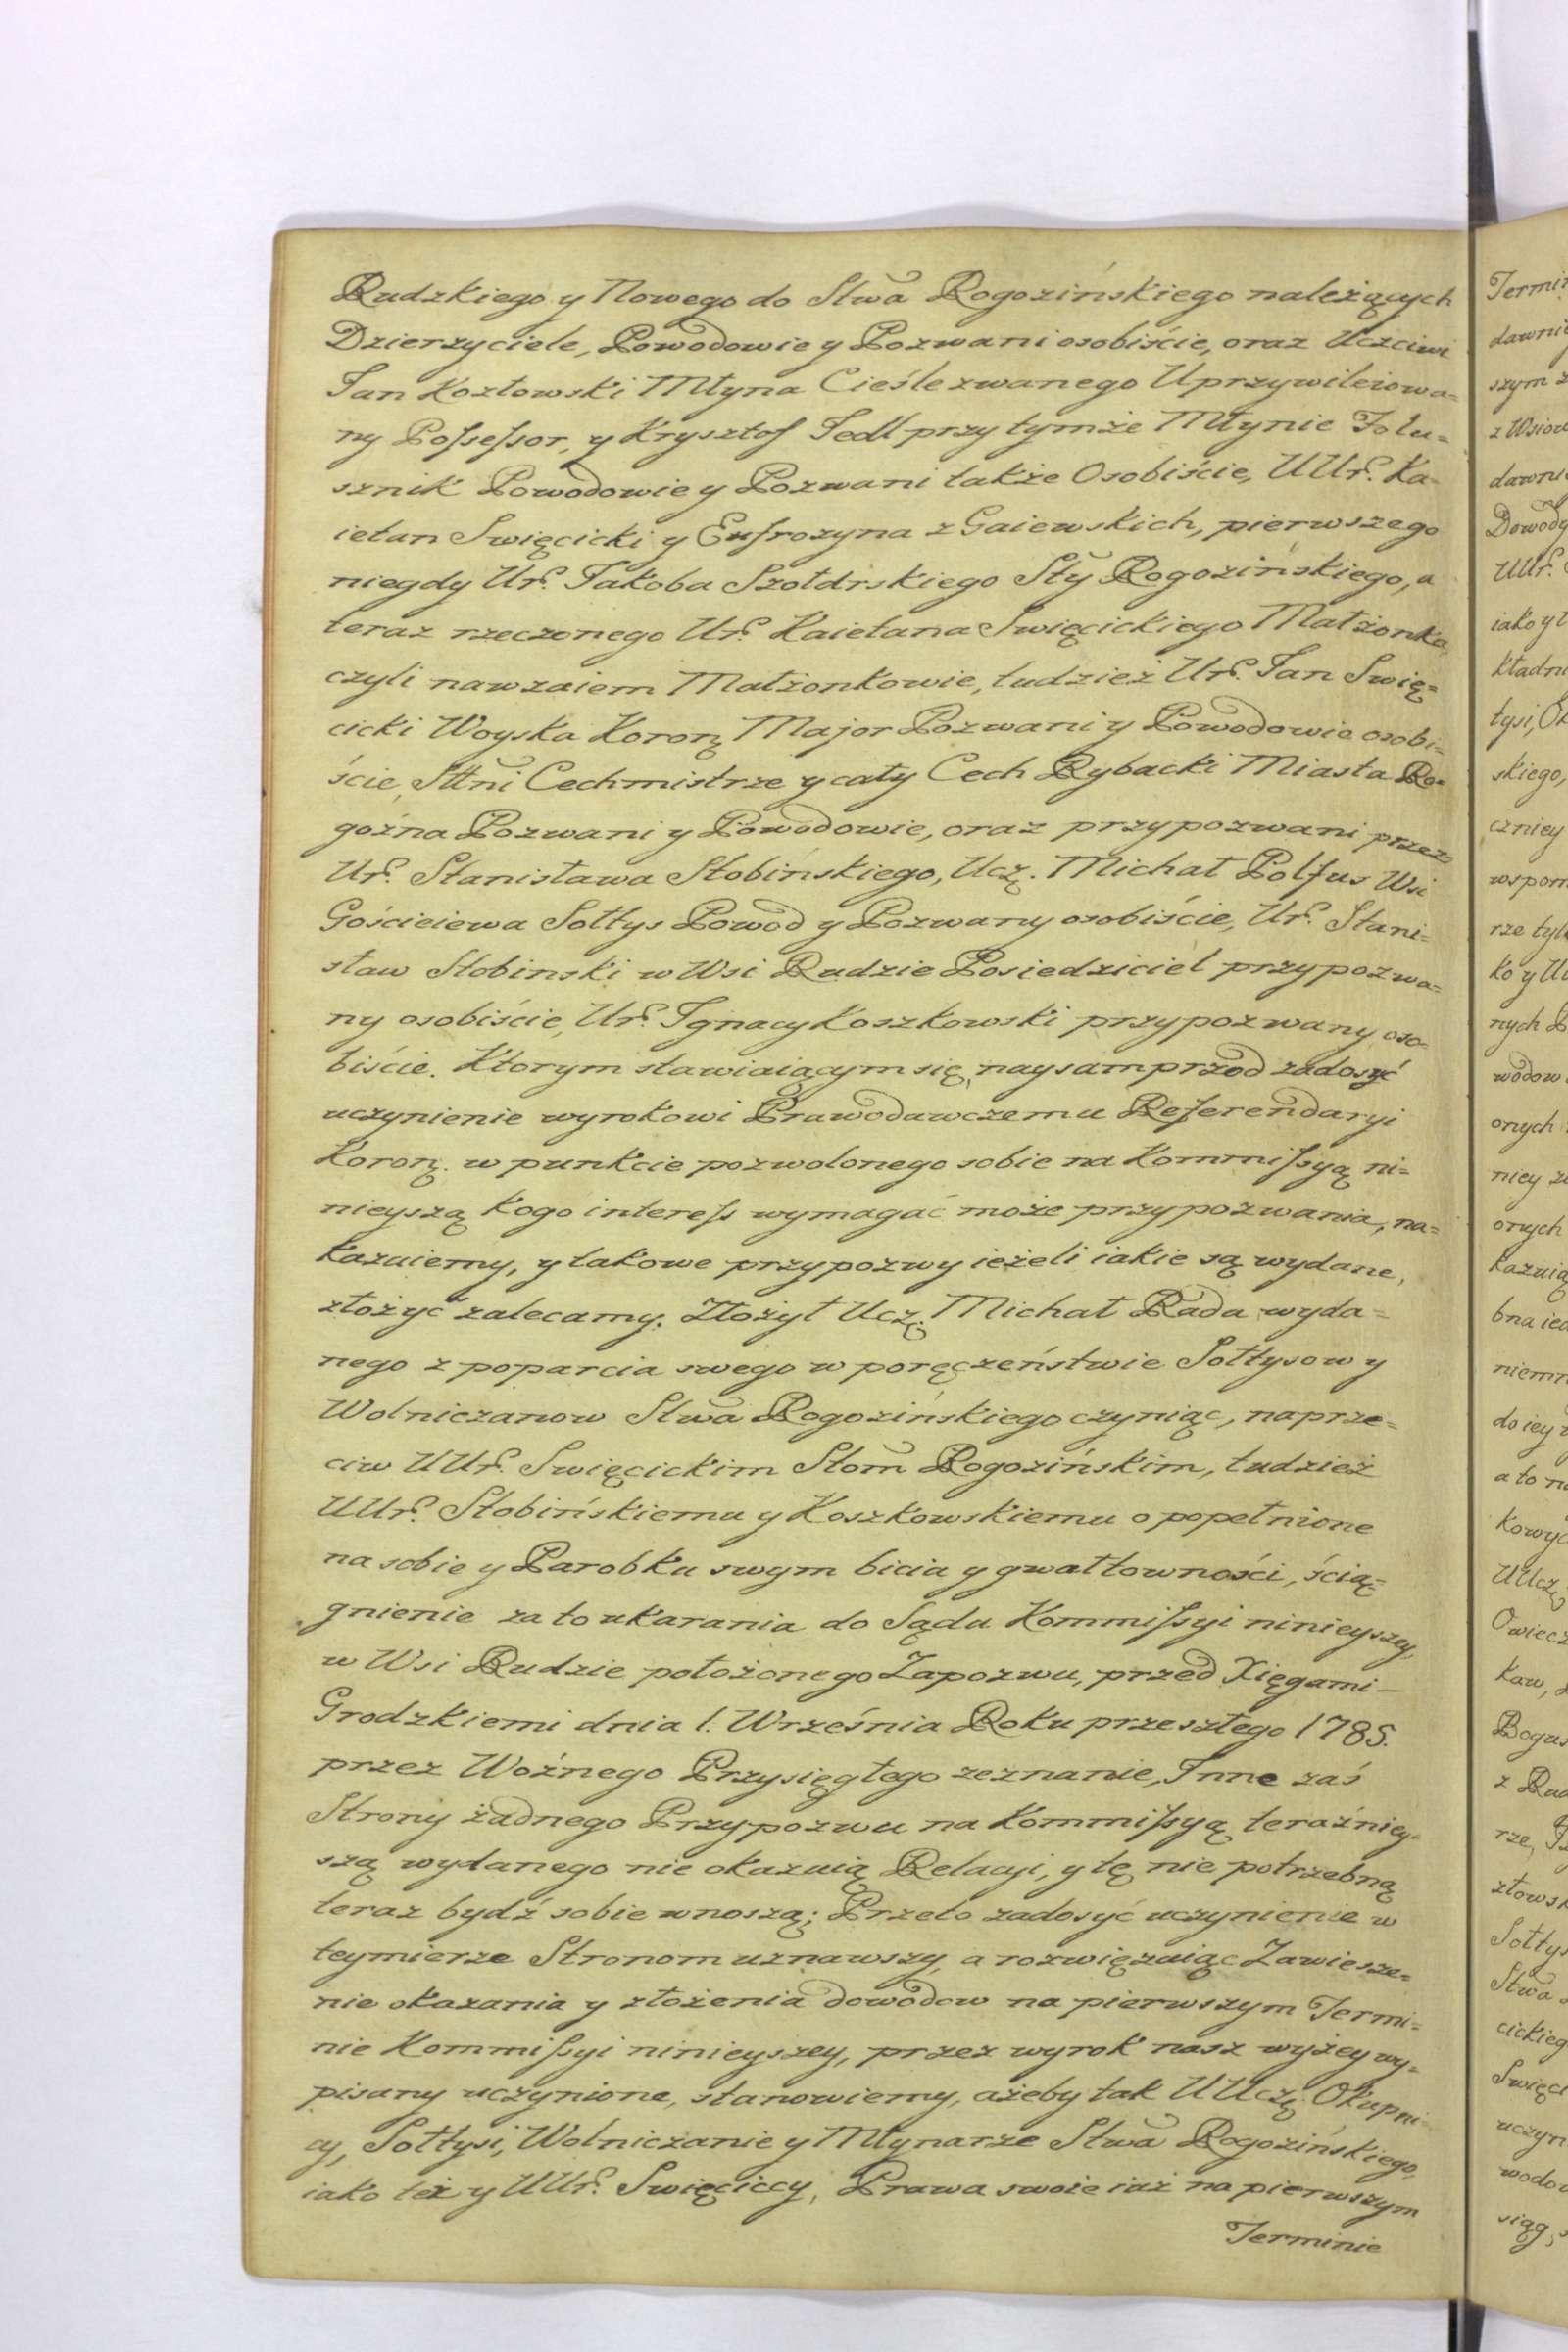 Rudzkiego y Nowego do Stwa Rogozińskiego należących
Dzierzyciele, Powodowie y Pozwani osobiście, oraz Uczciwi
Jan Kozłowski Młyna Cieśle zwanego Uprzywileiowa=
ny Possessor, y Krysztof Jedl przy tymże Młynie Folu=
sznik Powodowie y Pozwani także Osobiście, UUr. Ka-
ietan Swięcicki y Eufrozyna z Gaiewskich, pierwszego
niegdy Ur. Jakoba Szołdrskiego Sty Rogozińskiego, a
teraz rzeczonego Ur. Kaietana Swięcickiego Małżonka,
czyli nawzaiem Małżonkowie, tudzież Ur. Jan Swię=
cicki Woyska Koron. Major Pozwani y Powodowie osobi=
ście, Sttni Cechmistrze y cały Cech Rybacki Miasta Ro=
goźna Pozwani y Powodowie, oraz przypozwani przez
Ur. Stanisława Słobińskiego, Ucz. Michał Polfus Wsi
Gościeiewa Sołtys Powod y Pozwany osobiście, Ur. Stani=
sław Słobinski w Wsi Rudzie Posiedziciel przypozwa=
ny osobiście, Ur. Ignacy Koszkowski przypozwany oso=
biście. Ktorym stawiaiącym się, naysamprzod zadosyć
uczynienie wyrokowi Prawodawczemu Referendaryi
Koron. w punkcie pozwolonego sobie na Kommissyą ni=
nieyszą kogo interess wymagać może przypozwania, na=
kazuiemy, y takowe przypozwy ieżeli iakie są wydane,
złożyć zalecamy. Złożył Ucz. Michał Rada wyda=
nego z poparcia swego w poręczeństwie Sołtysow y
Wolniczanow Stwa Rogozińskiego czyniąc, naprze=
ciw UUr. Swięcickim Stom Rogozińskim, tudzież
UUr. Słobińskiemu y Koszkowskiemu o popełnione
na sobie y Parobku swym bicia y gwałtowności, ścią=
gnienie za to ukarania do Sądu Kommissyi ninieyszey,
w Wsi Rudzie położonego Zapozwu, przed Xięgami
Grodzkiemi dnia 1. Września Roku przeszłego 1785.
przez Woźnego Przysięgłego zeznanie, Inne zaś
Strony żadnego Przypozwu na Kommissyą teraźniey=
szą wydanego nie okazuią Relacyi, y tę nie potrzebną
teraz bydź sobie wnoszą; Przeto zadosyć uczynienie w
teymierze Stronom uznawszy, a rozwięzuiąc Zawiesze=
nie okazania y złożenia dowodow na pierwszym Termi=
nie Kommissyi ninieyszey, przez wyrok nasz wyżey wy=
pisany uczynione, stanowiemy, ażeby tak UUcz. Okupni=
cy, Sołtysi, Wolniczanie y Młynarze Stwa Rogozińskiego,
iako też y UUr. Swięciccy, Prawa swoie iuż na pierwszym
Terminie